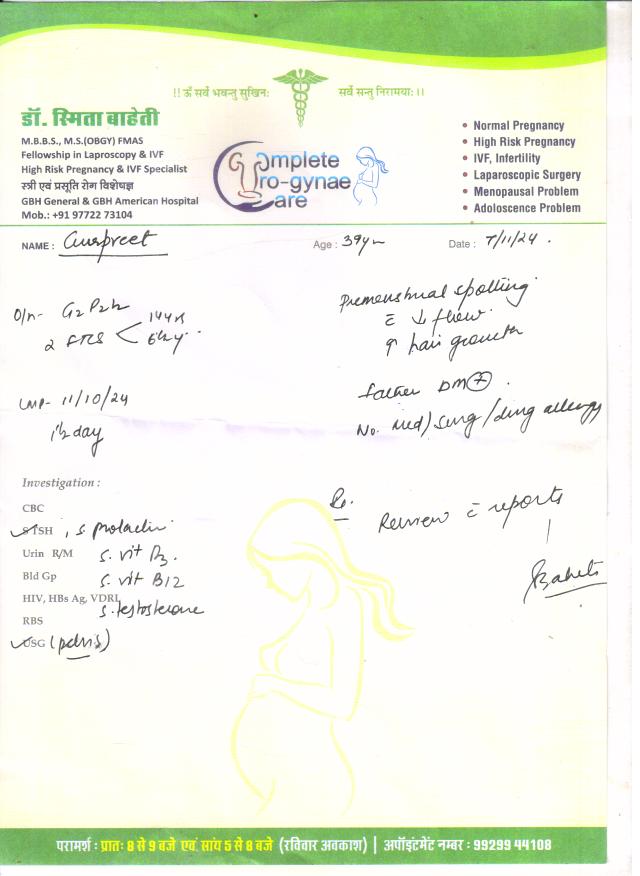 !! ॐ सर्वे भवन्तु सुखिनः सर्वे सन्तु निरामयाः ।।
डॉ. स्मिता बाहेती
M.B.B.S., M.S.(OBGY) FMAS
Fellowship in Laproscopy & IVF
High Risk Pregnancy & IVF Specialist
स्त्री एवं प्रसूति रोग विशेषज्ञ
GBH General & GBH American Hospital
Mob.: +91 97722 73104
Complete
Uro-gynae
Care
• Normal Pregnancy
• High Risk Pregnancy
• IVF, Infertility
• Laparoscopic Surgery
• Menopausal Problem
• Adoloscence Problem
NAME : Gurpreet Age : 39yr Date : 7/11/24 .
O/h- G2P2L2
2 FTCS < 14yrs
Premenstrual spotting
c ↓ flow
↑ hair growth
LMP- 11/10/24
1½ day
father DM +
No. med/surg/drug allergy
Investigation :
CBC
S TSH , S. prolactin
Urin R/M S. vit D3.
Bld Gp S. vit B12
HIV, HBs Ag, VDRL
S. testosterone
RBS
USG (pelvis)
Rx.
Review c reports
Baheti
परामर्श : प्रातः 8 से 9 बजे एवं सांय 5 से 8 बजे (रविवार अवकाश) | अपॉइंटमेंट नम्बर : 99299 44108